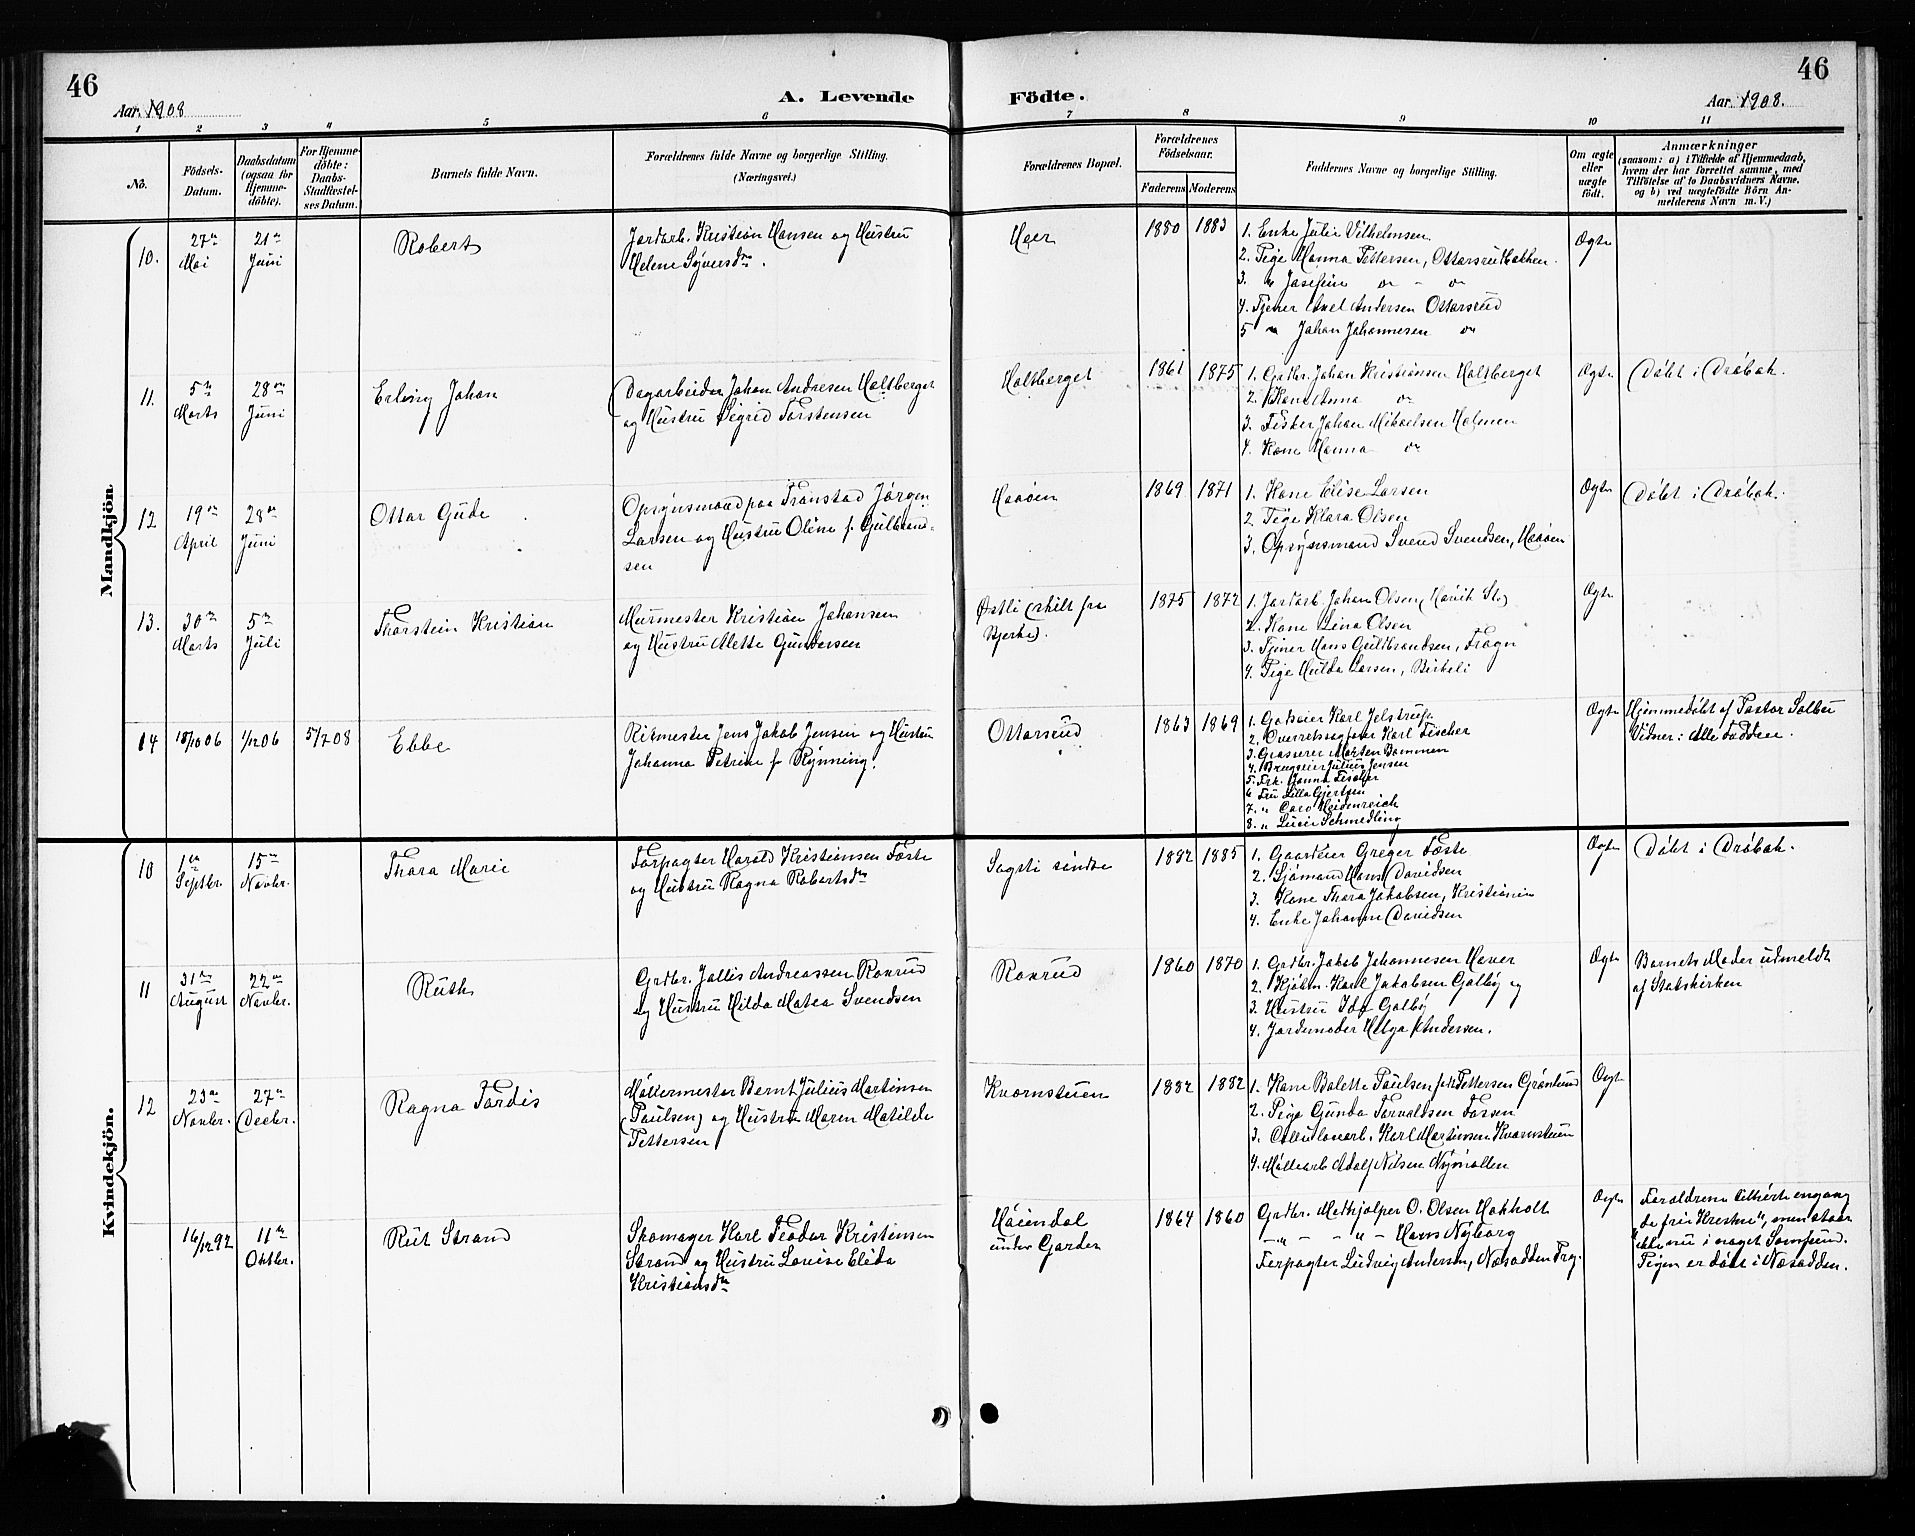 46
46
Aar. 1908
A. Levende Födte.
Aar. 1908.
1 2 3 4 5 6 7 8 9 10 11
No.
Födsels-Datum.
Daabsdatum (ogsaa for Hjemme-döbte).
For Hjemme-döbte: Daabs-Stadfæstel-ses Datum.
Barnets fulde Navn.
Forældrenes fulde Navne og borgerlige Stilling.
(Næringsvei.)
Forældrenes Bopæl.
Forældrenes Födselsaar.
Faderens Moderens
Faddernes Navne og borgerlige Stilling.
Om ægte eller uægte födt.
Anmærkninger
(saasom: a) i Tilfælde af Hjemmedaab,
hvem der har forrettet samme, med
Tilföielse af to Daabsvidners Navne,
og b) ved uægtefödte Börn An-
melderens Navn m. V.)
Mandkjön
10. 27de Mai 21de Juni Robert
Jordarb. Kristian Hansen og Hustru
Helene Syversdtr.
Heer 1880 1883
1. Enke Julie Vilhelmsen
2. Pige Hanna Pettersen, Ottarsrudbakken.
3. " Josefine do - do
4. Tjener Axel Andersen Ottarsrud
5 " Johan Johannesen do
Ægte
11. 5te Marts 28de Juni Erling Johan
Dagarbeider Johan Andresen Holtberget
og Hustru Sigrid Torstensen
Holtberget 1861 1875
1. Grdbr. Johan Kristiansen Holtberget
2. Kone Anna do
3. Fisker Johan Mikaelsen Holmen
4. Kone Hanna do
Ægte Døbt i Drøbak.
12 19de April 28de Juni Ottar Gude
Opsynsmand paa Tronstad Jørgen
Larsen og Hustru Oline f. Gulbrand-
sen
Haaøen 1869 1871
1. Kone Elise Larsen
2. Pige Klara Olsen
3. Opsynsmand Svend Svendsen, Haaøen
Ægte Døbt i Drøbak.
13. 30te Marts 5te Juli Thorstein Kristian
Murmester Kristian Johansen
og Hustru Mette Gundersen
Østli (skilt fra
Bjerke).
1875 1872
1. Jordarb. Johan Olsen (Havik St.)
2. Kone Lina Olsen
3. Tjener Hans Guldbrandsen, Frogn
4. Pige Hulda Larsen, Birkeli
Ægte
14 18/10 06 1/12 06 5/7 08 Ebbe
Ritmester Jens Jakob Jensen og Hustru
Johanna Petrine f. Rynning.
Ottarsrud 1863 1869
1. Godseier Karl Jelstrup
2. Overretssagfører Karl Fischer
3. Grosserer Morten Bommen
4. Brugseier Julius Jensen
5. Frk. Hanna Fischer
6 Fru Lilla Gjertsen
7. " Caro Heidenreich
8. " Lucie Schmedling
Ægte Hjemmedøbt af Pastor Solber
Vidner: Alle Faddere.
Kvindekjön.
10 1ste Septbr. 15de Novbr. Thora Marie
Forpagter Harald Kristiansen Foste
og Hustru Ragna Robertsdtr
Sogsti søndre 1882 1885
1. Gaardeier Greger Foste
2. Sjømand Hans Davidsen
3. Kone Thora Jakobsen, Kristiania
4. Enke Johanne Davidsen
Ægte Døbt i Drøbak.
11 31te August 22de Novbr. Ruth
Grdbr. Jallis Andreassen Roxrud
og Hustru Hilda Matea Svendsen
Roxrud 1860 1870
1. Grdbr. Jakob Johannesen Haver
2. Kjøbm. Karl Jakobsen Galby og
3. Hustru Ida Galby
4. Jordemoder Helga Andersen.
Ægte Barnets Moder udmeldt
af Statskirken
12 23de Novbr. 27de Decbr. Ragna Tordis
Møllermester Bernt Julius Martinsen
(Paulsen) og Hustru Maren Matilde
Pettersen
Kvornstuen 1882 1882
1. Kone Bolette Paulsen født Pettersen Grønlund
2. Pige Gunda Torvaldsen Fossen
3. Cellulosearb. Karl Martinsen Kvornstuen
4. Møllearb Adolf Nilsen Nymollen
Ægte
16/12 92 11te Oktbr. Rut Strand
Skomager Karl Teodor Kristensen
Strand og Hustru Lovise Elida
Kristiansdtr
Høiendal
under Garder
1864 1860
Grdbr. Methjelper O. Olsen Hokholt
- " - - " - Hans Nyborg
Forpagter Ludvig Andersen, Næsodden Frg.
Ægte Forældrene tilhørte engang
"de frie Kristne", men staar
ikke nu i noget Samfund.
Pigen er døbt i Næsodden.